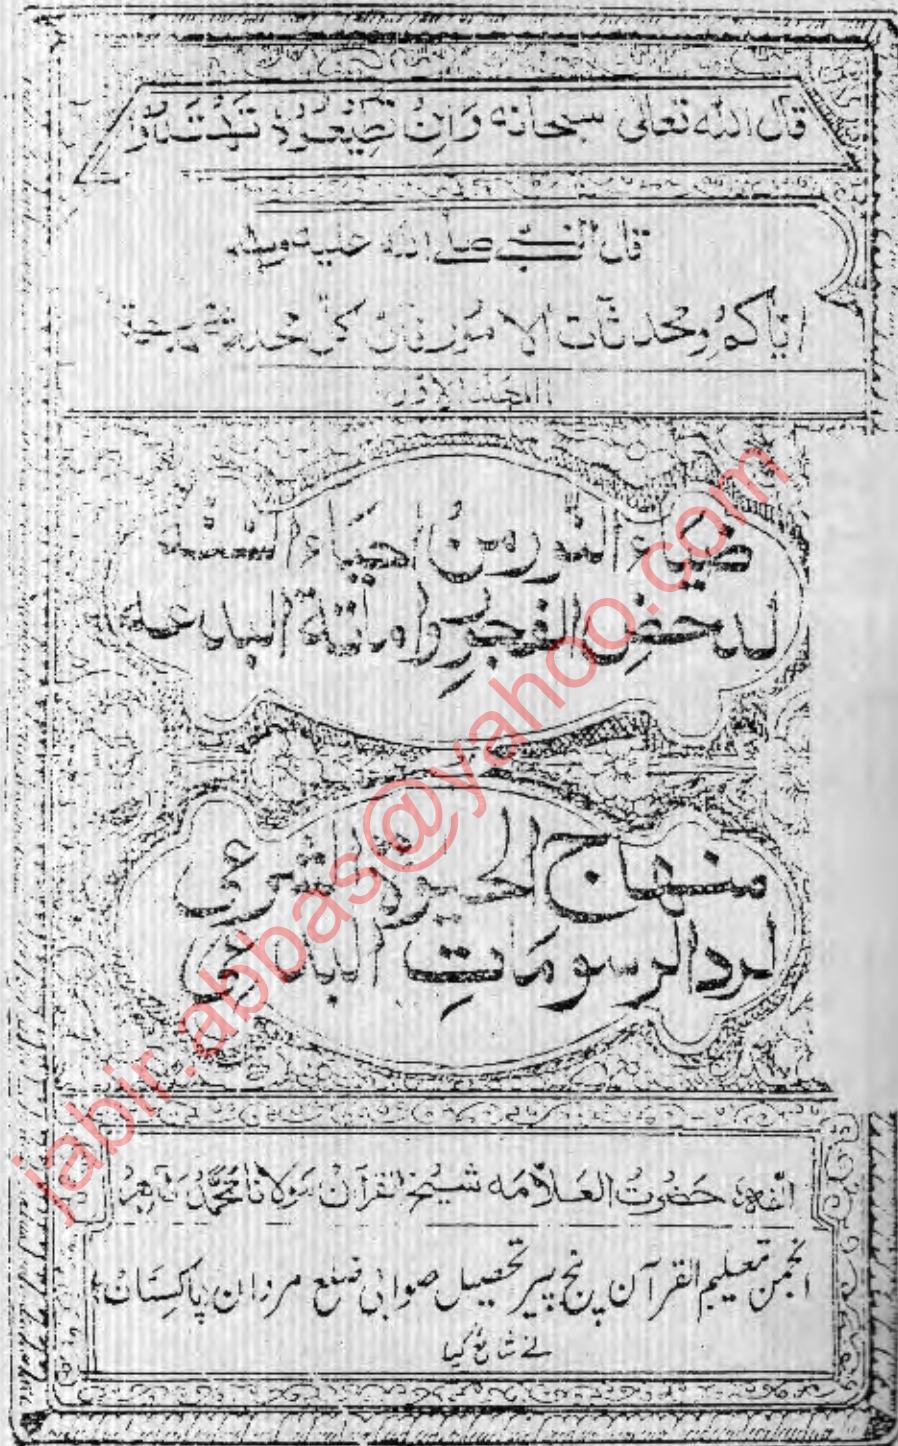 قال الله تعالى سبحانه وَاِنْ تُطِيْعُوْهُ تَهْتَدُوْا
قال النبي صلے الله عليه وسلم
اياكم ومحدثات الامور فان كل محدثة
المجلد الاول
ضياء النور من احياء السنة
لدحض الفجور واماتة البدعة
منهاج الحيوة الشرعى
لرد الرسومات البدعى
الفه حضرت العلامه شيخ القرآن مولانا محمد طاهر
انجمن تعلیم القرآن پنج پیر تحصیل صوابی ضلع مردان پاکستان
نے شائع کیا
jabir.abbas@yahoo.com